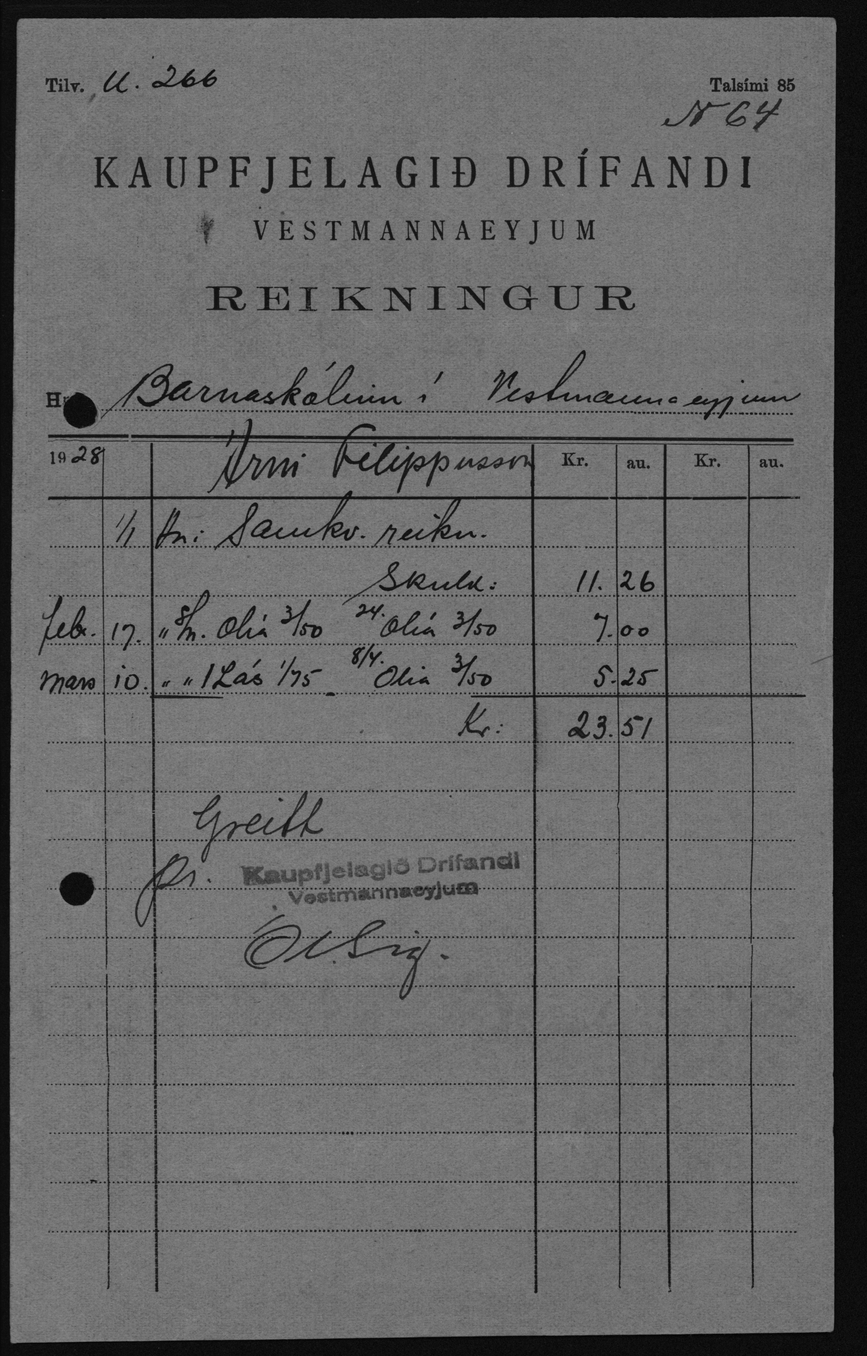 Tilv. U. 266 Talsími 85
N 64
KAUPFJELAGIÐ DRÍFANDI
VESTMANNAEYJUM
REIKNINGUR
Barnaskólinn í Vestmannaeyjum
1928 Árni Filippusson Kr. au. Kr. au.
1/1 Samkv. reikn.
Skuld: 11. 26
febr. 17. " Olía 3/50 24. Olía 3/50 7.00
mars 10. " " 1 Lás 1/75 8/4. Olía 3/50 5.25
Kr: 23.51
Greitt
pr. Kaupfjelagið Drífandi
Vestmannaeyjum
Ól. Sig.